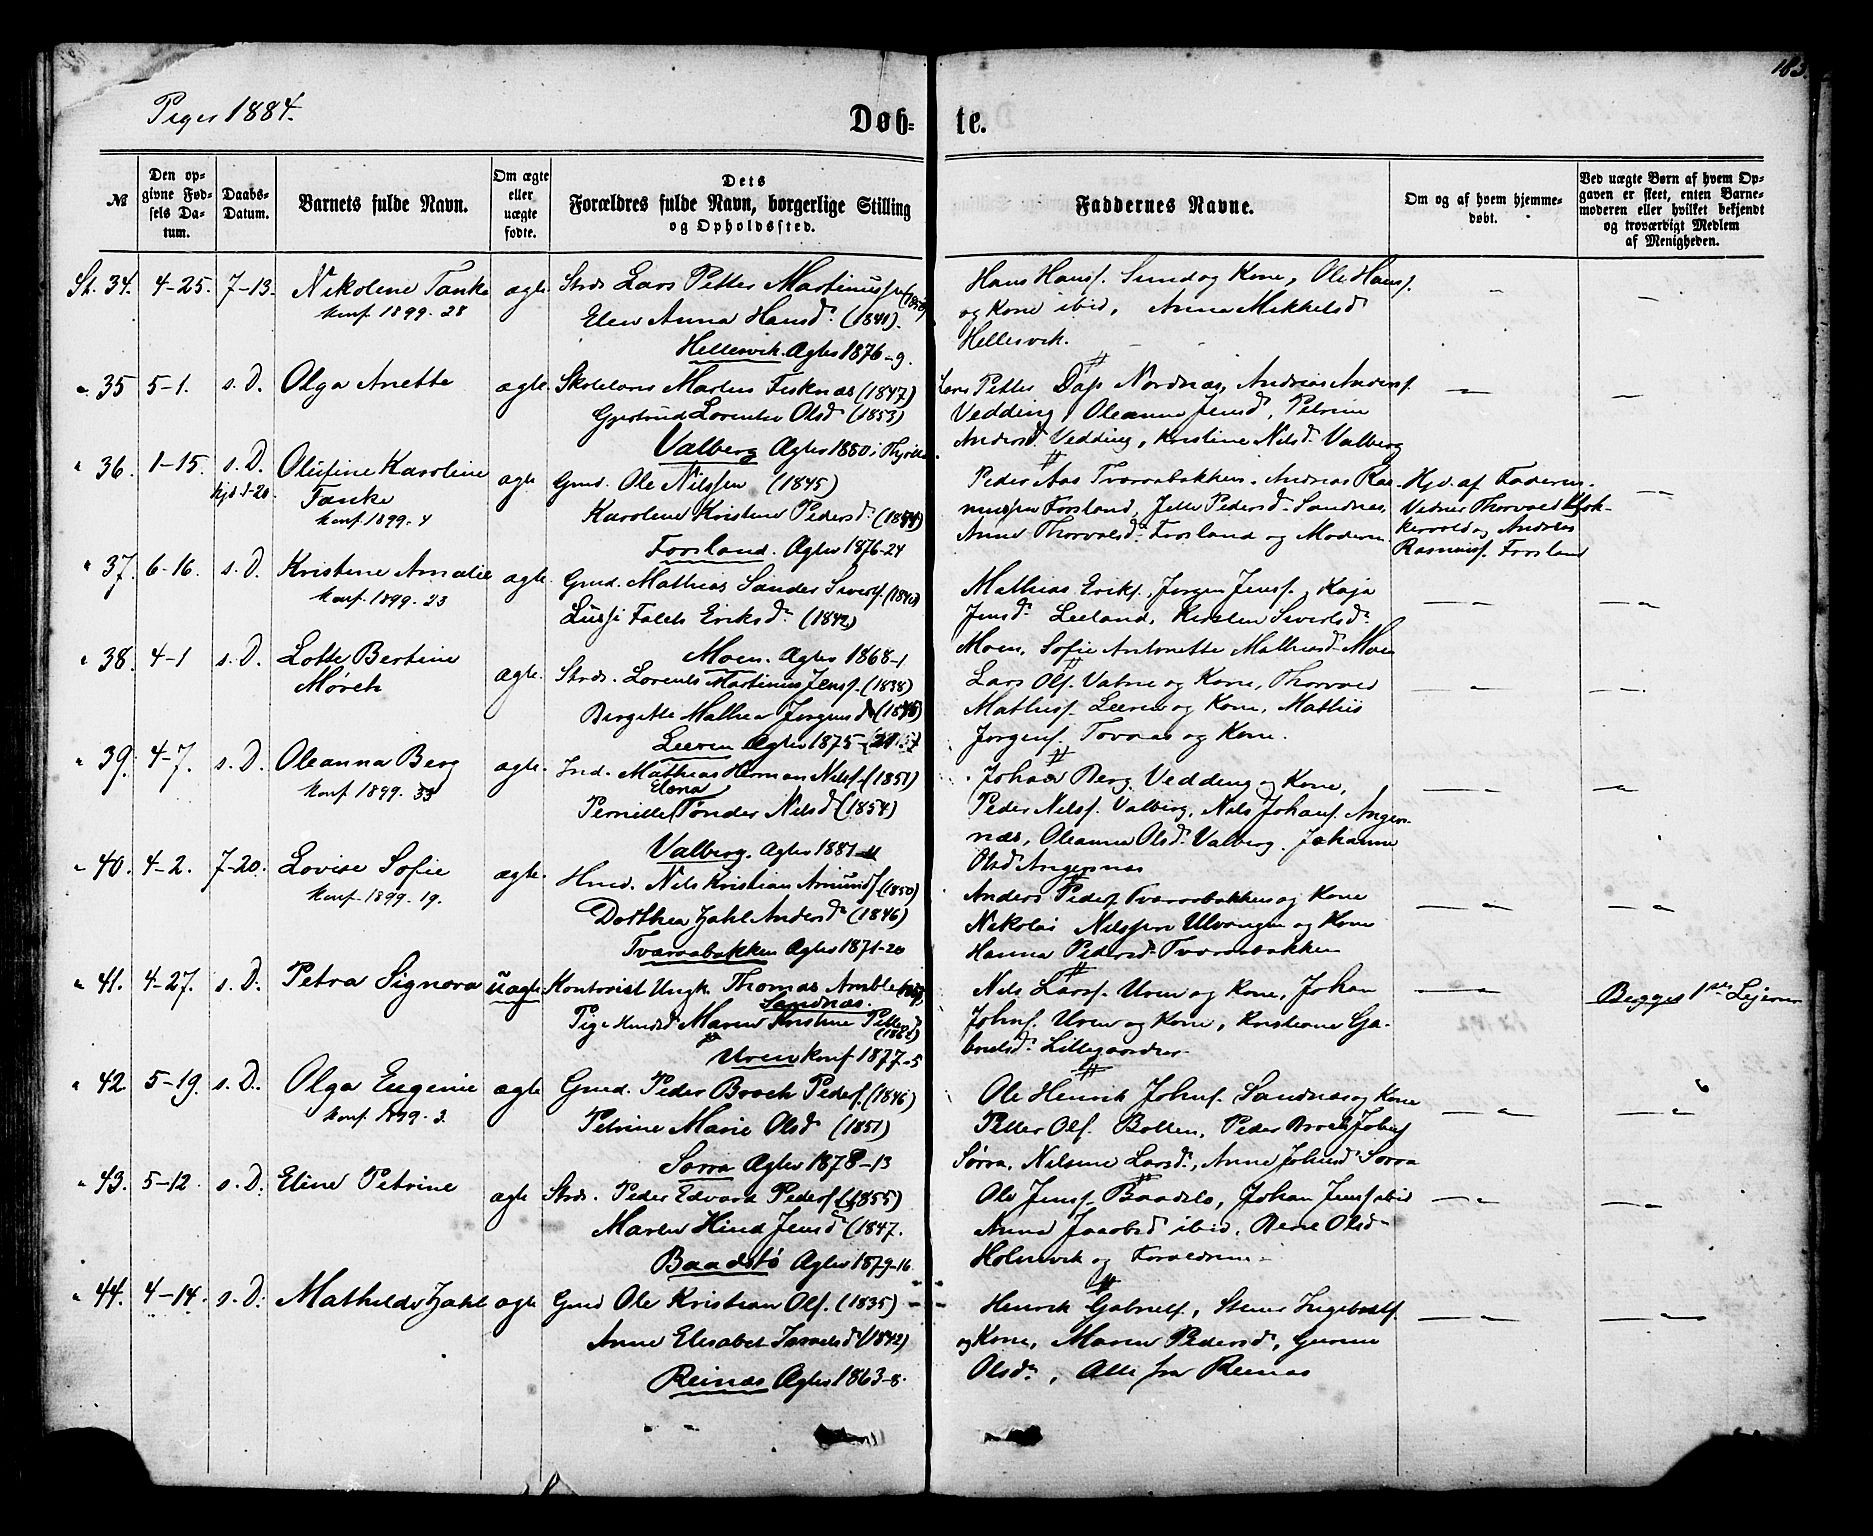 Piger 1884.
Døb- te.
183.
№
Den opgivne Fødsels Datum.
Daabs-Datum.
Barnets fulde Navn.
Om ægte eller uægte fødte.
Dets Forældres fulde Navn, borgerlige Stilling og Opholdssted.
Faddernes Navne.
Om og af hvem hjemmedøbt.
Ved uægte Børn af hvem Opgaven er skeet, enten Barnemoderen eller hvilket bekjendt og troværdigt Medlem af Menigheden.
St. 34. 4-25. 7-13. Nikoline Tanke ægte Strds Lars Petter Martinuss.
Konf. 1899. 28 Elen Anna Hansd. (1841).
Hellesvik. Ægtev 1876-9.
Hans Hansf. Sund og Kone, Ole Hansf.
og Kone ibid, Anna Mikkelsd
Hellesvik.
" 35 5-1. s.D. Olga Anette ægte. Skolelærer Martin Fisknæs (1847)
Gjertrud Lorentse Olsd (1853)
Valberg Ægtev 1880 i
Lars Petter Dap Nordnæs, Andreas Andersf.
Vedding, Oleanna Jensd, Petrine
Andersd Vedding, Kristine Nilsd. Valberg
" 36. 1-15. s.D. Olufine Karoline ægte Gmd. Ole Nilssen (1845)
hjd 1-20. Tanke Karoline Kristine Pedersd.
Konf. 1899. 4
Forsland. Ægtev 1876-24
Peder Aas Tværaabakken. Andreas Ras-
mussen Forsland, Jelle Pedersd. Sandnæs,
Anne Thorvalds. Forsland og Moderen.
Hjd. af Faderen.
Vidner Thorvald
og Andreas
Rasmusf. Forsland
" 37. 6-16. s.D. Kristine Amalie ægte. Gmd. Mathias Sander Sivertsf.
Konf. 1899. 23 Lussi Falch Eriksd. (1842)
Moen. Ægtev 1868-1
Mathias Eriksf., Jørgen Jensf., Kaja
Jensd. Leeland, Kirsten Sivertsd.
Moen, Sofie Antonette Mathiasd. Moen
" 38. 4-1 s.D. Lotte Bertine ægte. Strds. Lorents Martinus Jensf. (1838)
Mørch Bergitte Mathea Jørgensd
Leeren Ægtev 1875
Lars Olf. Vatne og Kone, Thorvald
Mathisf. Leeren og Kone, Mathis
Jørgenf. Tovnæs og Kone.
" 39. 4-7. s.D. Oleanna Berg ægte. Ind. Mathias Herman Nilsf. (1851)
Elena
Konf. 1899. 33 Pernille Tønder Nilsd (1854)
Valberg. Ægtev 1881
Johan Berg, Vedding og Kone,
Peder Nilsf. Valberg, Nils Johanf. Anger-
næs, Oleanna Olsd. Valberg. Johanna
Olsd Angersnæs
" 40. 4-2. 7-20. Lovise Sofie ægte. Hmd. Nils Kristian Amundsf (1850)
Konf. 1899. 19. Dorthea Zahl Andersd. (1846)
Tværaabakken Ægtev 1871-20
Anders Pedersf. Tværaabakken og Kone
Nikolai Nilssen Ulvangen og Kone
Hanna Pedersd. Tværaabakken
" 41. 4-27. s.D. Petra Signora uægte Kontorist Ungk. Thomas Amble
Sandnæs.
Pige Maren Kristine Pettersd
Uren Konf. 1877-5
Nils Larsf. Uren og Kone, Johan
Johnf. Uren og Kone, Kristiane Ga-
brielsd. Lillegaardnes.
Begges 1ste Lejermaal
" 42 5-19. s.D. Olga Eugenie ægte Gmd. Peder Broch Pedersf. (1846)
Konf. 1899. 3. Petrine Marie Olsd (1851)
Sørra Ægtev 1878-13
Ole Henrik Johnf. Sandnæs og Kone
Petter Olf. Bolten, Peder Broch Johnsf
Sørra, Nilsine Larsd., Anne Johnsd Sørra
" 43. 5-12. s.D. Eline Petrine ægte Strds. Peder Edvard Pedersf. (1855)
Maren Hind Jensd (1847.
Baadstø Ægtev 1879-16
Ole Jensf. Baadstø, Johan Jensf ibid
Anna Jacobsd ibid. Berit Olsd-
Holmvik og Forældrene
" 44. 4-14. s.D. Mathilde Zahl ægte Gmd Ole Kristian Olf. (1835)
Anne Elisabet Israelsd (1842)
Reinæs Ægtev 1863-8.
Henrik Gabrielf., Stener Ingebretsf.
og Kone, Maren Pedersd., Gurine
Olsd., Alle fra Reinæs